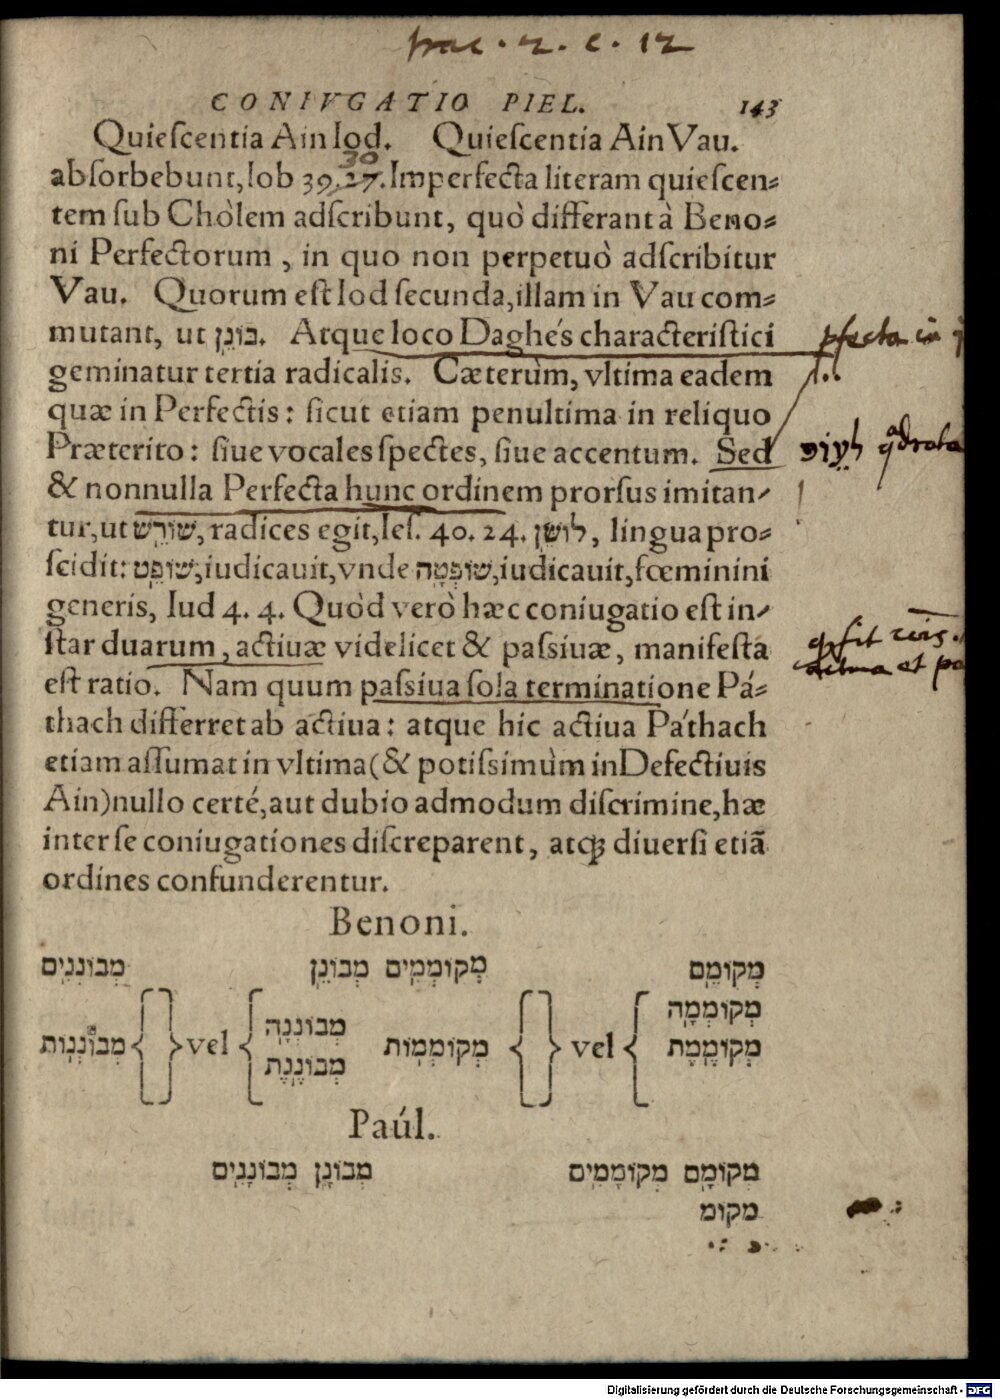 CONIVGATIO PIEL. 143
Quieſcentia Ain Iod. Quieſcentia Ain Vau.
30
abſorbebunt, Iob 39.27. Imperfecta literam quieſcen⸗
tem ſub Chòlem adſcribunt, quò differant à Beno⸗
ni Perfectorum, in quo non perpetuò adſcribitur
Vau. Quorum eſt Iod ſecunda, illam in Vau com⸗
mutant, ut בּוֹנֵן. Atque loco Daghés characteriſtici
geminatur tertia radicalis. Cæterùm, vltima eadem
quæ in Perfectis: ſicut etiam penultima in reliquo
Præterito: ſiue vocales ſpectes, ſiue accentum. Sed
& nonnulla Perfecta hunc ordinem prorſus imitan⸗
tur, ut שׁוֹרֵשׁ, radices egit, Ieſ. 40. 24. לוֹשֵׁן, lingua pro⸗
ſcidit: שׁוֹפֵט, iudicauit, vnde שׁוֹפְטָה, iudicauit, fœminini
generis, Iud 4. 4. Quòd verò hæc coniugatio eſt in⸗
ſtar duarum, actiuæ videlicet & paſsiuæ, manifeſta
eſt ratio. Nam quum paſsiua ſola terminatione Pá⸗
thach differret ab actiua: atque hic actiua Páthach
etiam aſſumat in vltima (& potiſsimùm in Defectiuis
Ain) nullo certé, aut dubio admodum diſcrimine, hæ
inter ſe coniugationes diſcreparent, atq; diuerſi etiā
ordines confunderentur.
Benoni.
מְקוֹמֵם מְקוֹמְמִים מְבוֹנֵן מְבוֹנְנִים
מְקוֹמְמָה מְבוֹנְנָה
מְקוֹמֶמֶת vel מְקוֹמְמוֹת מְבוֹנֶנֶת vel מְבוֹנְנוֹת
Paúl.
מְקוֹמָם מְקוֹמָמִים מְבוֹנָן מְבוֹנָנִים
מקומ
Digitalisierung gefördert durch die Deutsche Forschungsgemeinschaft - DFG